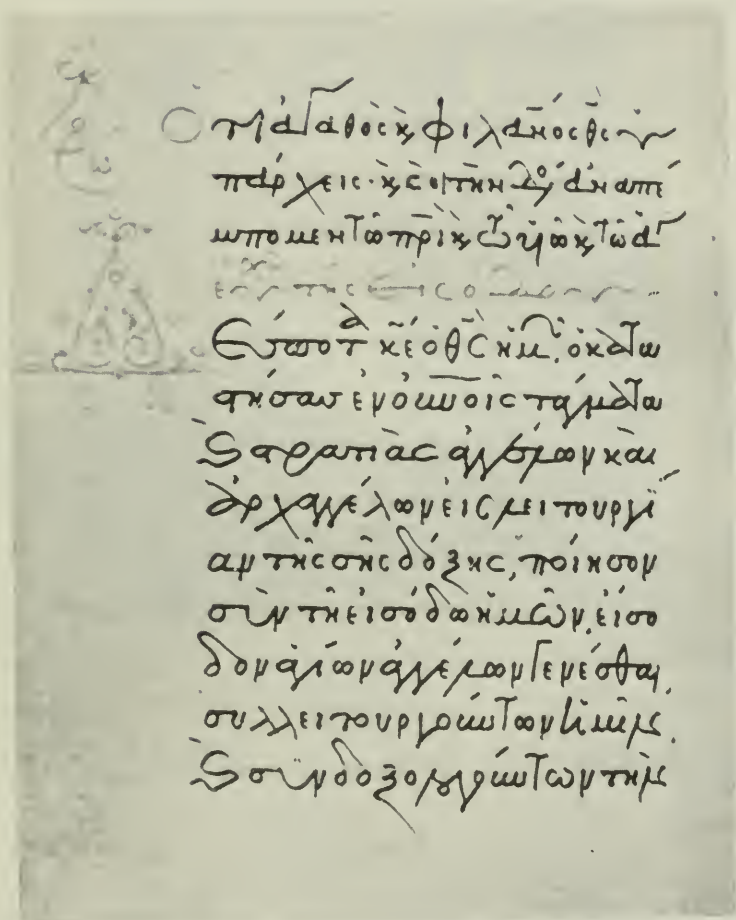 Ὅτι ἀγαθὸς κ̀ φιλάνος θς ὑ
πάρχεις· κ̀ σοὶ τὴν δό ἀναπέ
μπομεν τῶ πρὶ κ̀ τῶ υἱῶ κ̀ τῶ ἁγ
εὐχ τῆς
Δέσποτα κε ὁ θς ἡμ, ὁ κατα
στήσας ἐν οὐνοῖς τάγματα
ϛ στρατιὰς ἀγγέλων καὶ
ἀρχαγγέλων εἰς λειτουργί
αν τῆς σῆς δόξης, ποίησον
σὺν τῆ εἰσόδω ἡμῶν, εἴσο
δον ἁγίων ἀγγέλων γενέσθαι,
συλλειτουργούντων ἡμῖν.
ϛ συνδοξολογούντων τὴν